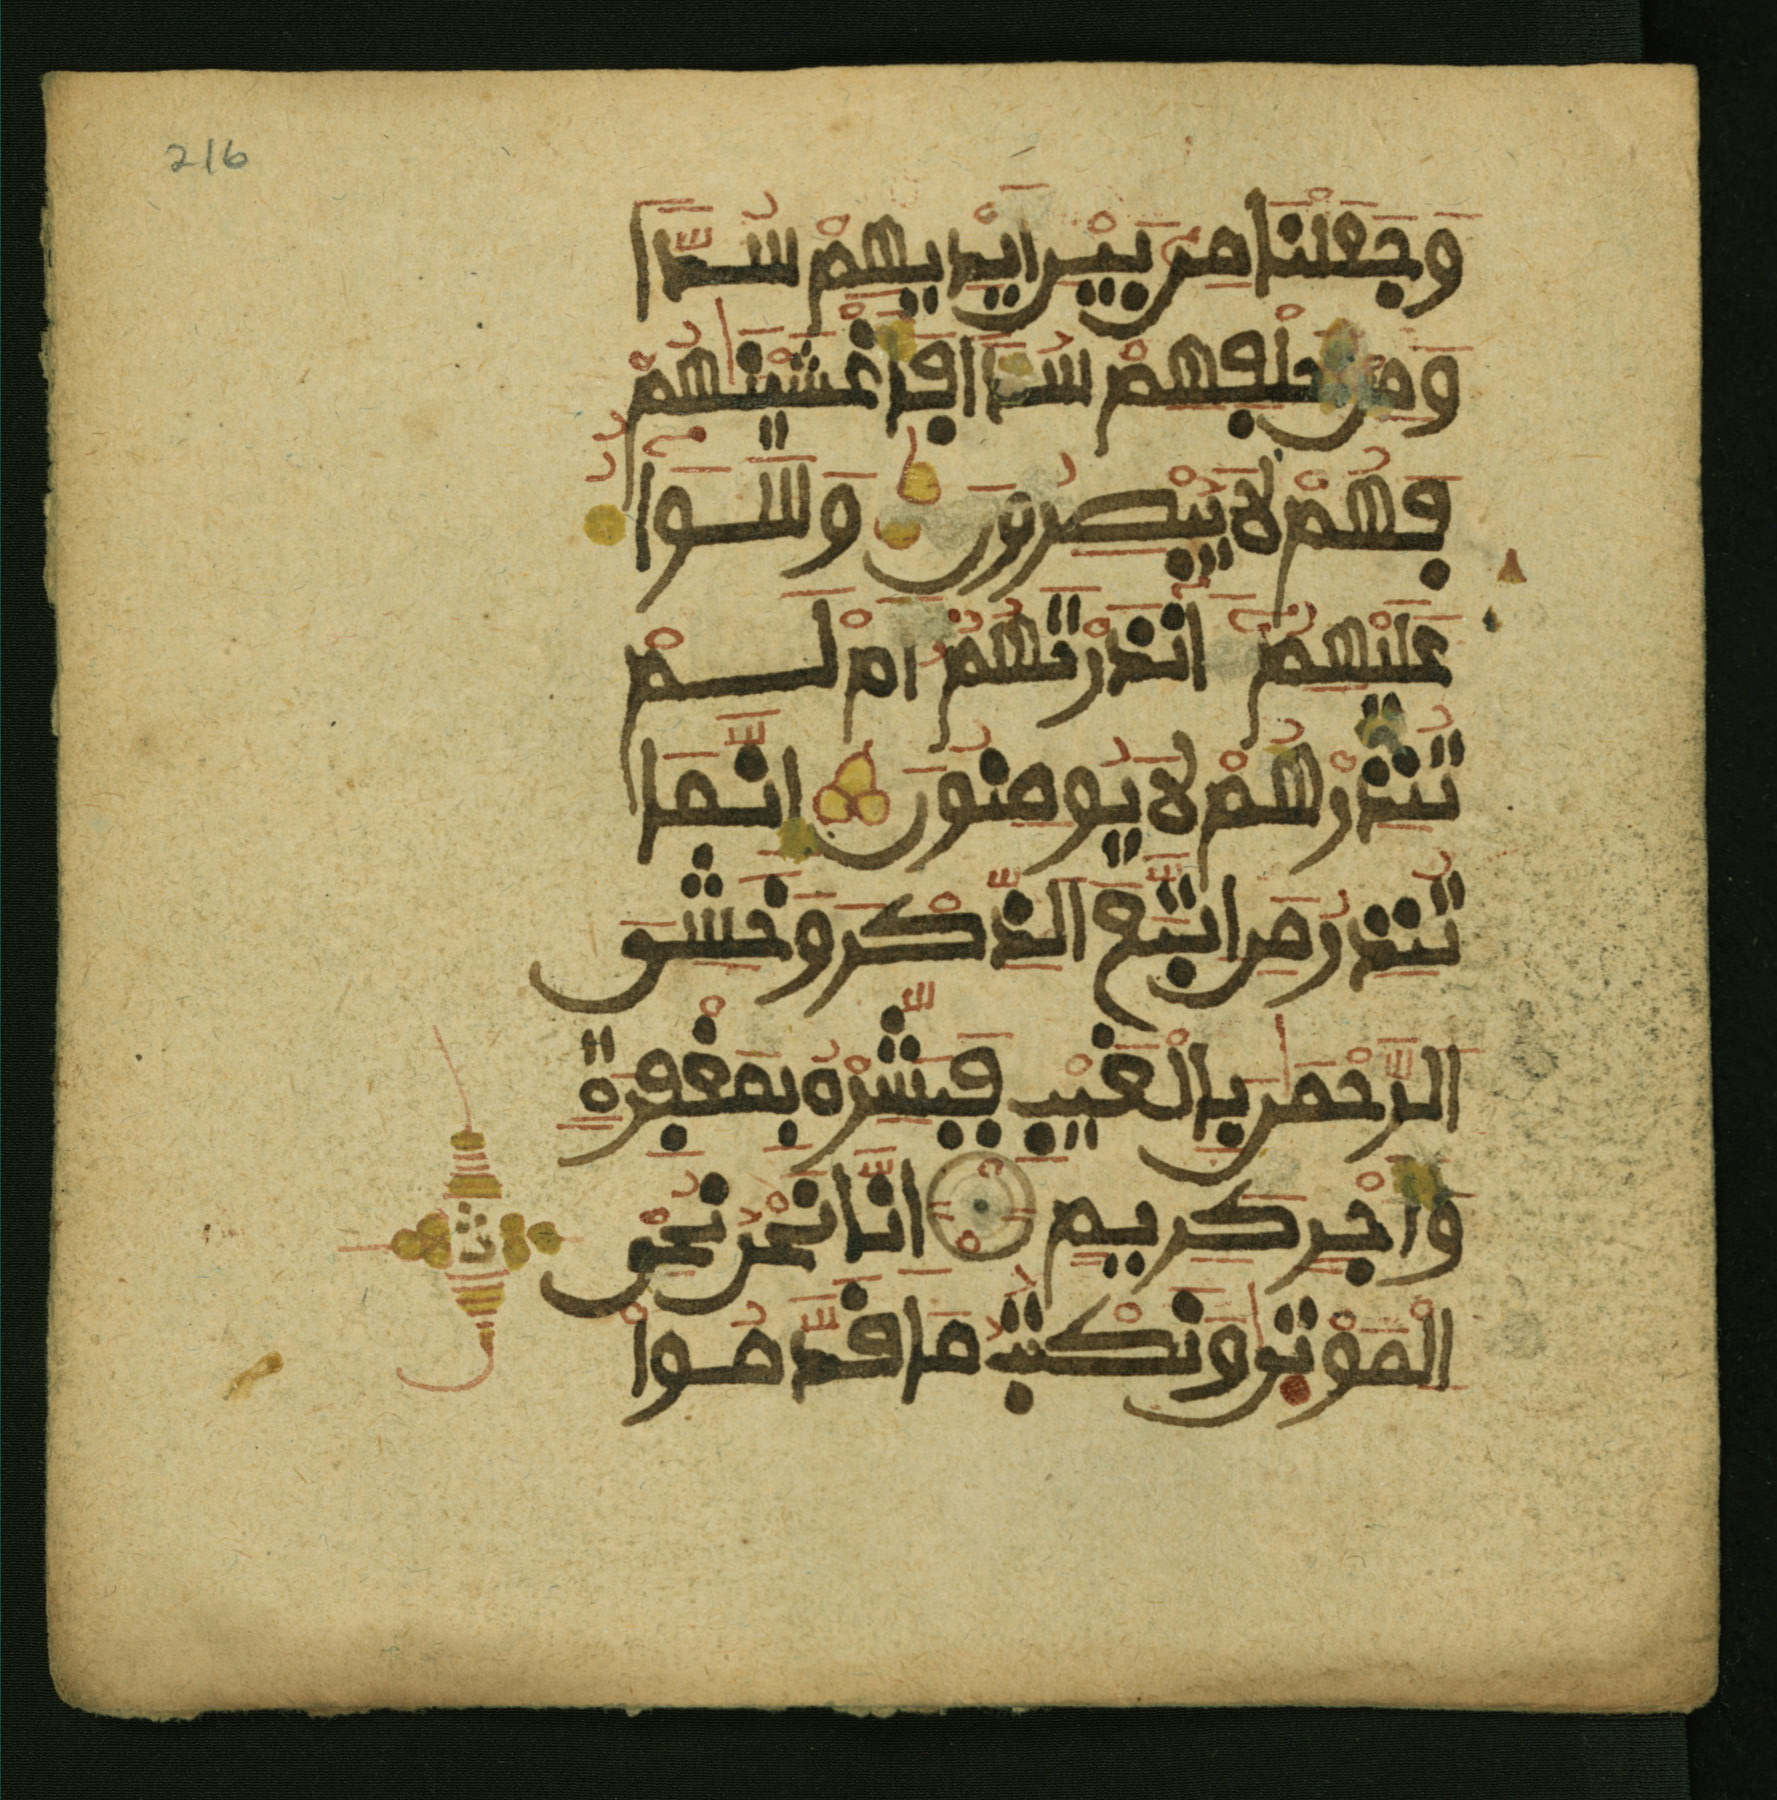 216
وَجَعَلْنَا مِن بَيْنِ أَيْدِيهِمْ سُدّاً
وَمِنْ خَلْفِهِمْ سُدّاً فَأَغْشَيْنَٰهُمْ
فَهُمْ لَا يُبْصِرُونَ وَسَوَآءٌ
عَلَيْهِمُۥٓ ءَآنذَرْتَهُمُۥٓ أَمْ لَمْ
تُنذِرْهُمْ لَا يُومِنُونَ إِنَّمَا
تُنذِرُ مَنِ اِتَّبَعَ اَلذِّكْرَ وَخَشِىَ
اَلرَّحْمَٰنَ بِالْغَيْبِ فَبَشِّرْهُ بِمَغْفِرَةٍ
وَأَجْرٍ كَرِيمٍ إِنَّا نَحْنُ نُحْىِ
اِلْمَوْتَىٰ وَنَكْتُبُ مَا قَدَّمُوا